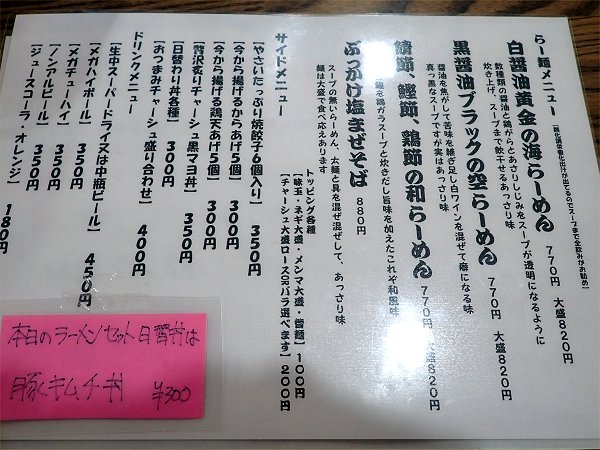 らー麺メニュー
白醤油黄金の海らーめん 770円 大盛820円
数種類の醤油と鶏がらとあさりしじみをスープが透明になるように
炊き上げ、スープまで飲干せるあっさり味
黒醤油ブラックの空らーめん 770円 大盛820円
醤油を焦がして苦味を継ぎ足し白ワインを混ぜて癖になる味
真っ黒なスープですが実はあっさり味
鯖節、鰹節、鶏節の和らーめん 770円 大盛820円
を鶏ガラスープと炊きだし旨味を加えたこれぞ和風味
ぶっかけ塩まぜそば 880円
スープの無いらーめん、太麺と具を混ぜ混ぜして、あっさり味
麺は大盛で食べ応えあります
トッピング各種
【味玉・ネギ大盛・メンマ大盛・替麺】100円
【チャーシュ大盛ロースORバラ選べます】200円
サイドメニュー
【やさいたっぷり焼餃子6個入り】 350円
【今から揚げるからあげ5個】 300円
【今から揚げる鶏天あげ5個】 300円
【贅沢炙りチャーシュ黒マヨ丼】 350円
【日替わり丼各種】 300円
【おつまみチャーシュ盛り合わせ】 400円
ドリンクメニュー
【生中スーパードライ又は中瓶ビール】 450円
【メガハイボール】 350円
【メガチューハイ】 350円
【ノンアルビール】 350円
【ジュースコーラ・オレンジ】 180円
本日のラーメンセット日替丼は
豚キムチ丼 ¥300